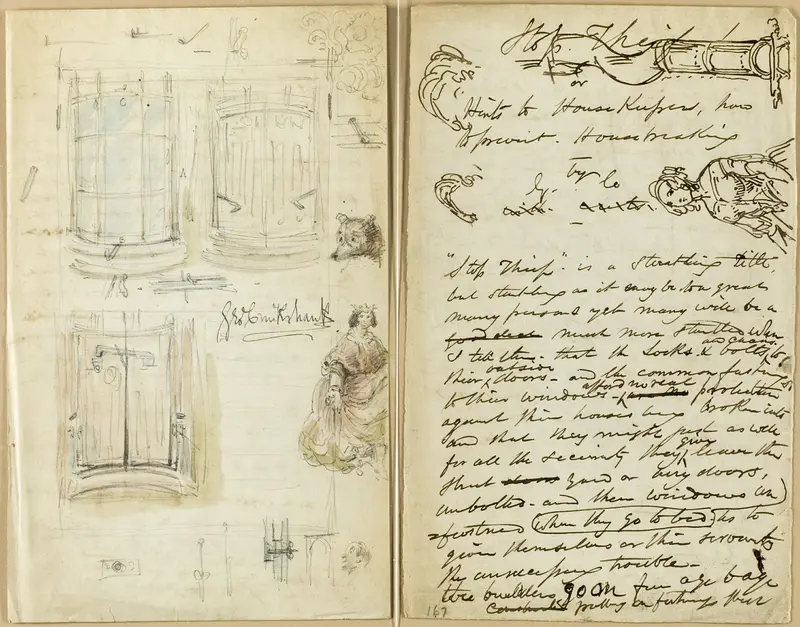 Geo Cruikshank
Stop. Thief!
or
Hints to HouseKeepers, how
to prevent. Housebreaking
by
"Stop Thief" - is a Startling title,
but startling as it may be to a great
many persons yet many will be a
much more startled when
I tell them - that the Locks & bolts, and chains to
their outside doors - and the common fastenings
to their windows - afford no real protection
against their houses being broken into
and that they might just as well
for all the security they give, leave their
street yard or airy doors,
unbolted - and their windows un
fastened (when they go to bed) as to
give themselves or their servants
the unnecessary trouble -
the builders go on for age
putting on fastenings that
167